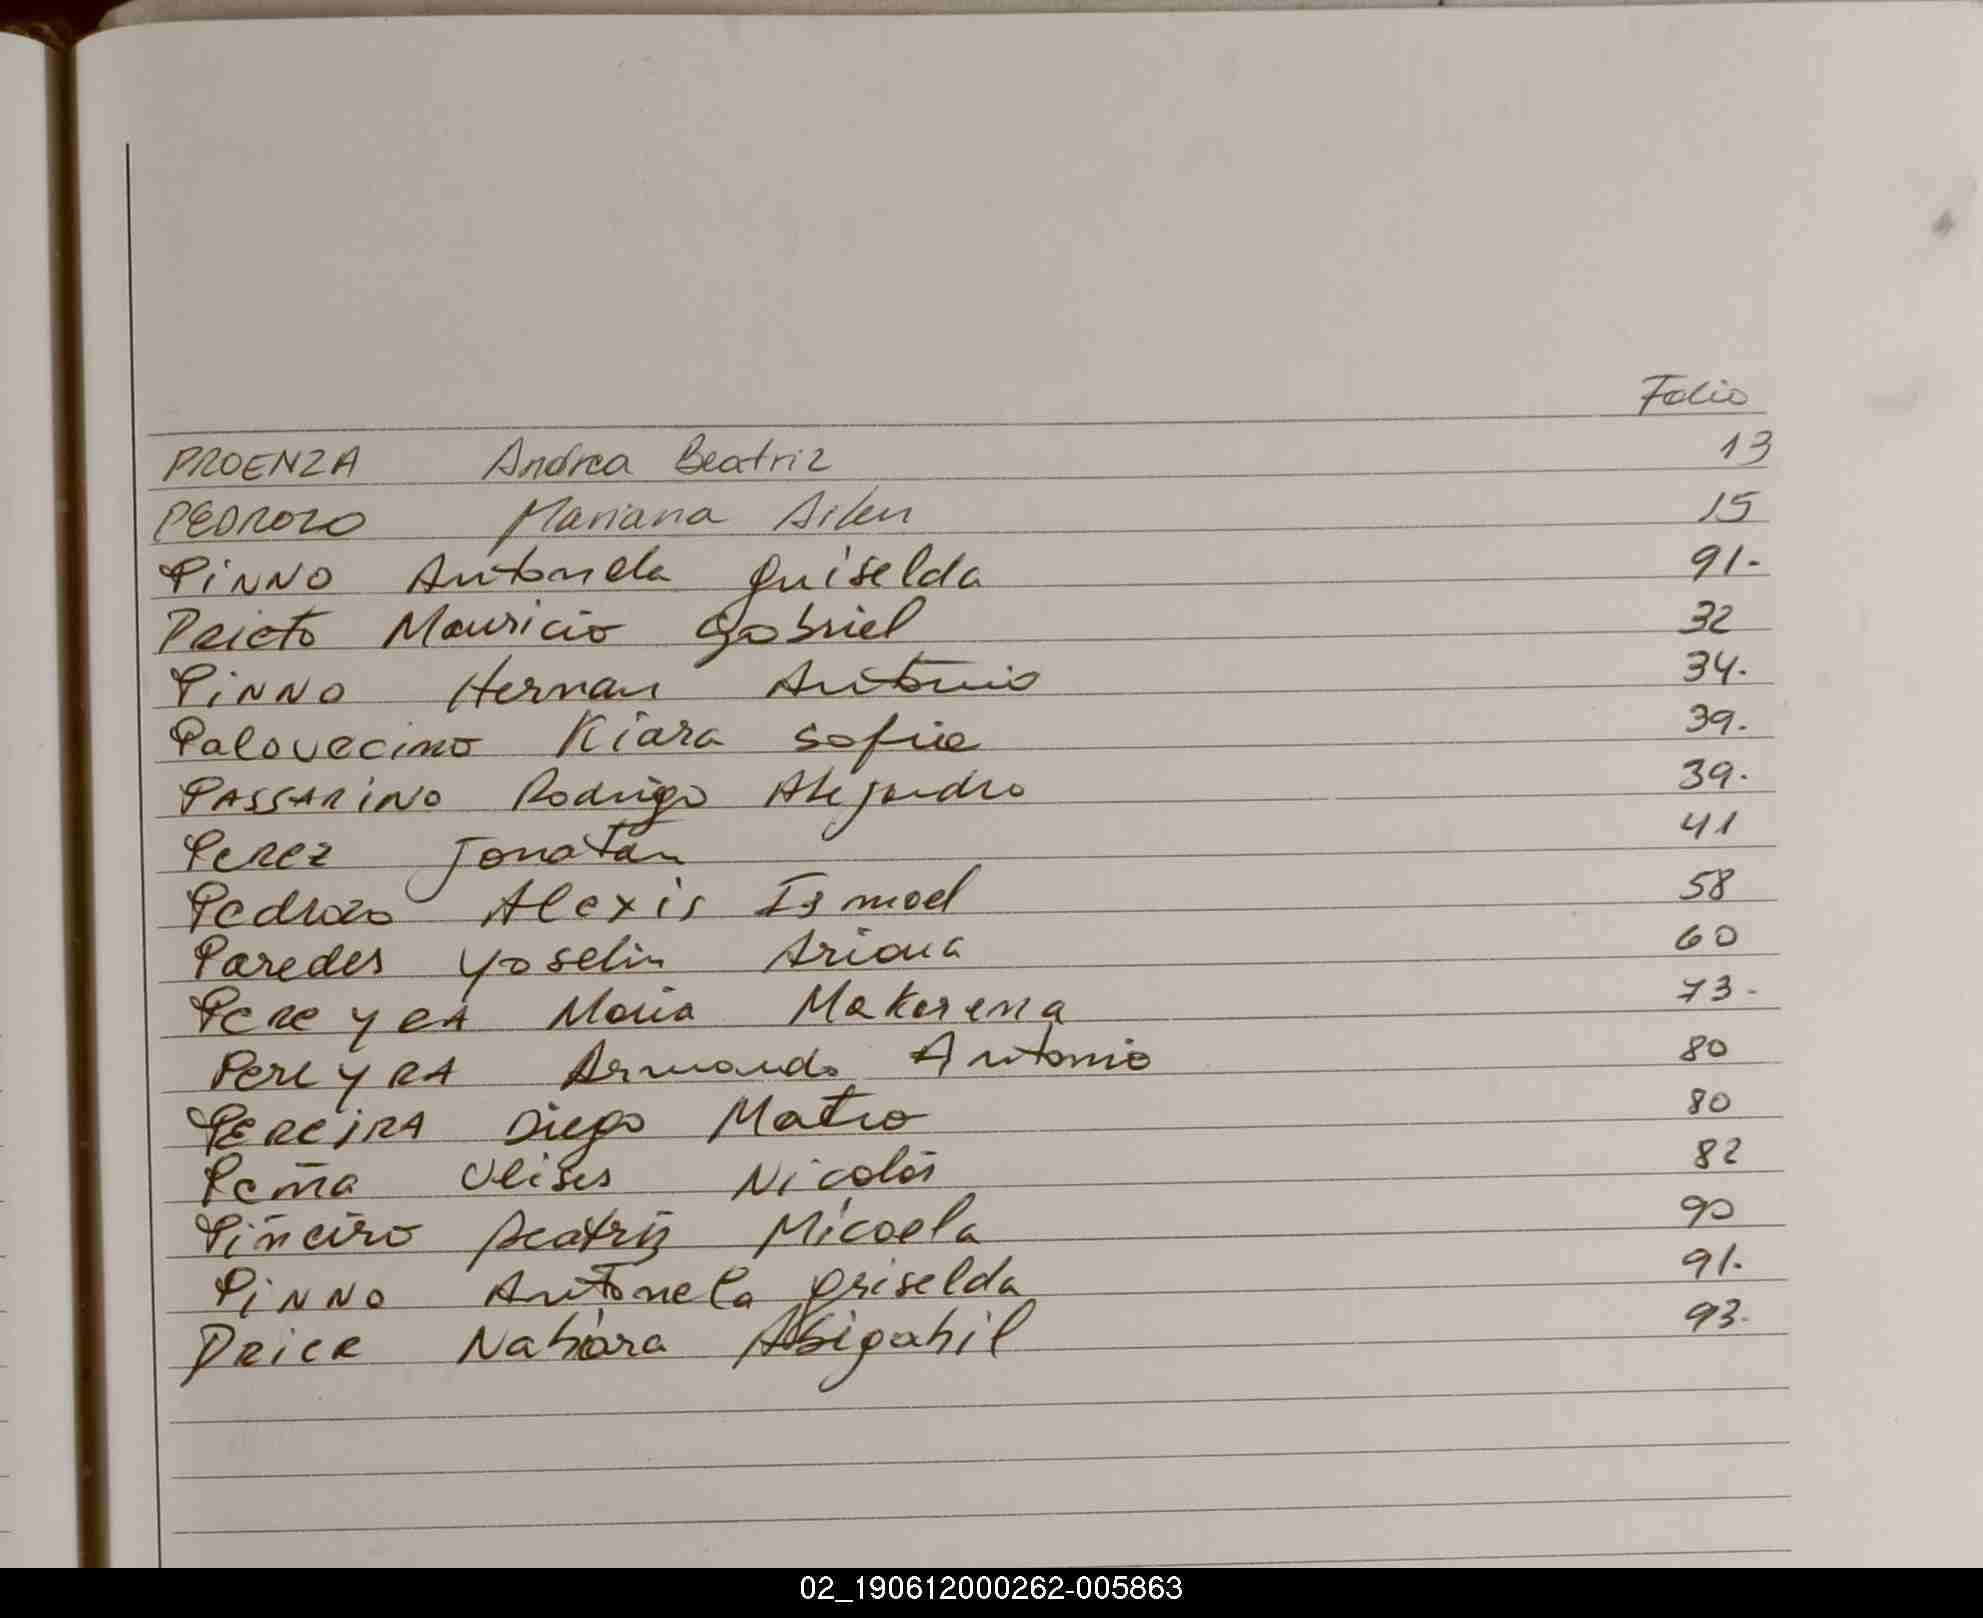 Folio
PROENZA Andrea Beatriz 13
PEDROZO Mariana Ailen 15
PiNNO Antonela Guiselda 91.
Prieto Mauricio Gabriel 32
PiNNO Hernan Antonio 34.
Palavecino Kiara Sofia 39.
PASSARiNO Rodrigo Alejandro 39.
Perez Jonatan 41
Pedrozo Alexis Ismael 58
Paredes Yoselin Ariana 60
PereyRA Maria Makarena 73.
PereyRA Armando Antonio 80
PEReiRA Diego Mateo 80
Peña Ulises Nicolás 82
Piñeiro Beatriz Micaela 90
PiNNO Antonela Griselda 91.
PRieR Nahiara Abigahil 93.
02_190612000262-005863